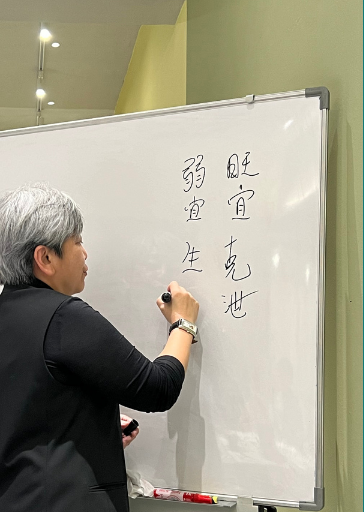 旺宜克泄
弱宜生